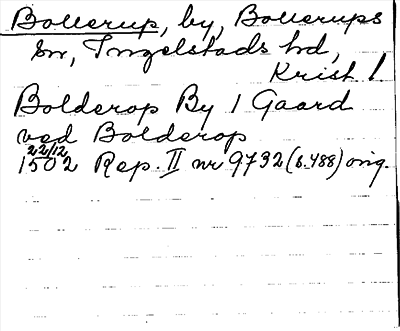 Bollerup, by, Bollerups
sn, Ingelstads hd,
Krist l.
Bolderop By 1 Gaard
ved Bolderop
22/12
1502 Rep. II nr 9732 (s. 488) orig.